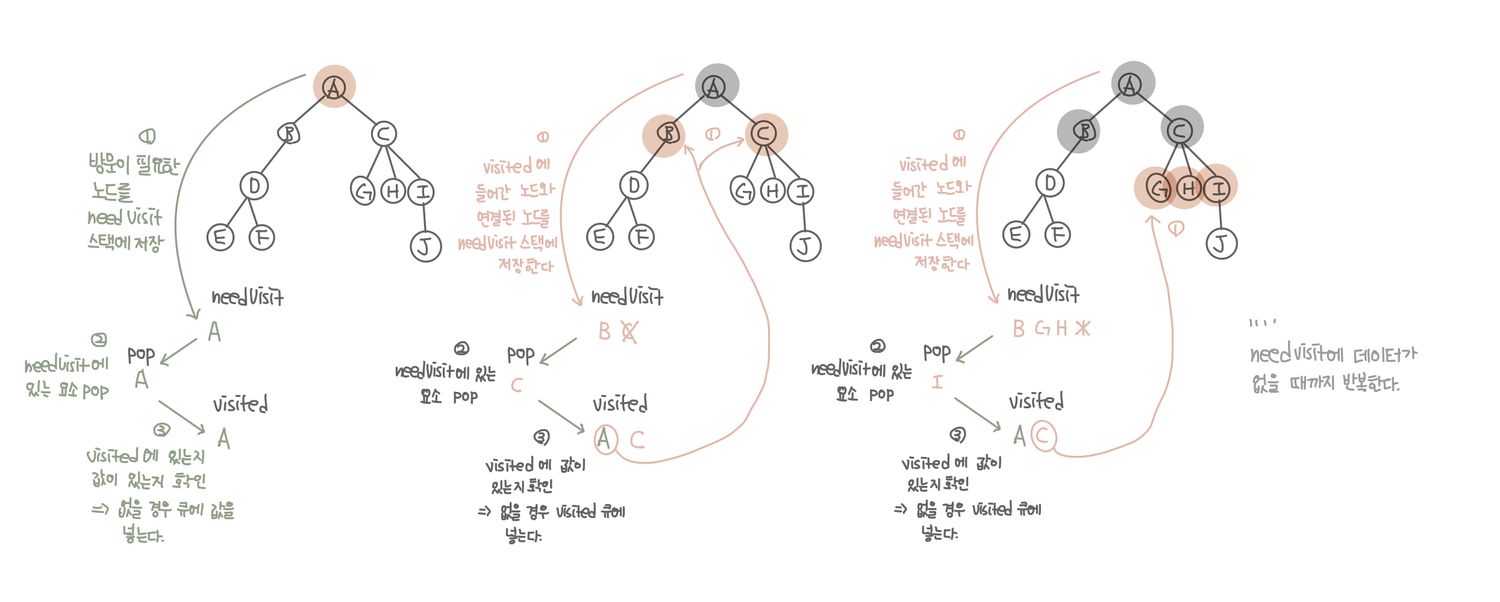 A
B
C
D
G
H
I
E
F
J
①
방문이 필요한
노드를
need Visit
스택에 저장
needVisit
A
②
needVisit에
있는 요소 POP
POP
A
visited
A
③
Visited 에 있는지
값이 있는지 확인
=> 없을 경우 큐에 값을
넣는다.
A
B
C
①
D
G
H
I
E
F
J
①
visited 에
들어간 노드와
연결된 노드를
needVisit 스택에
저장한다
needVisit
B C
②
needVisit에 있는
요소 POP
POP
C
visited
A C
③
visited 에 값이
있는지 확인
=> 없을 경우 visited 큐에
넣는다.
A
B
C
D
G
H
I
①
E
F
J
①
visited 에
들어간 노드와
연결된 노드를
needVisit 스택에
저장한다
needVisit
B G H
②
needVisit에 있는
요소 POP
POP
I
visited
A C
③
visited 에 값이
있는지 확인
=> 없을 경우 visited 큐에
넣는다.
needVisit에 데이터가
없을 때까지 반복한다.